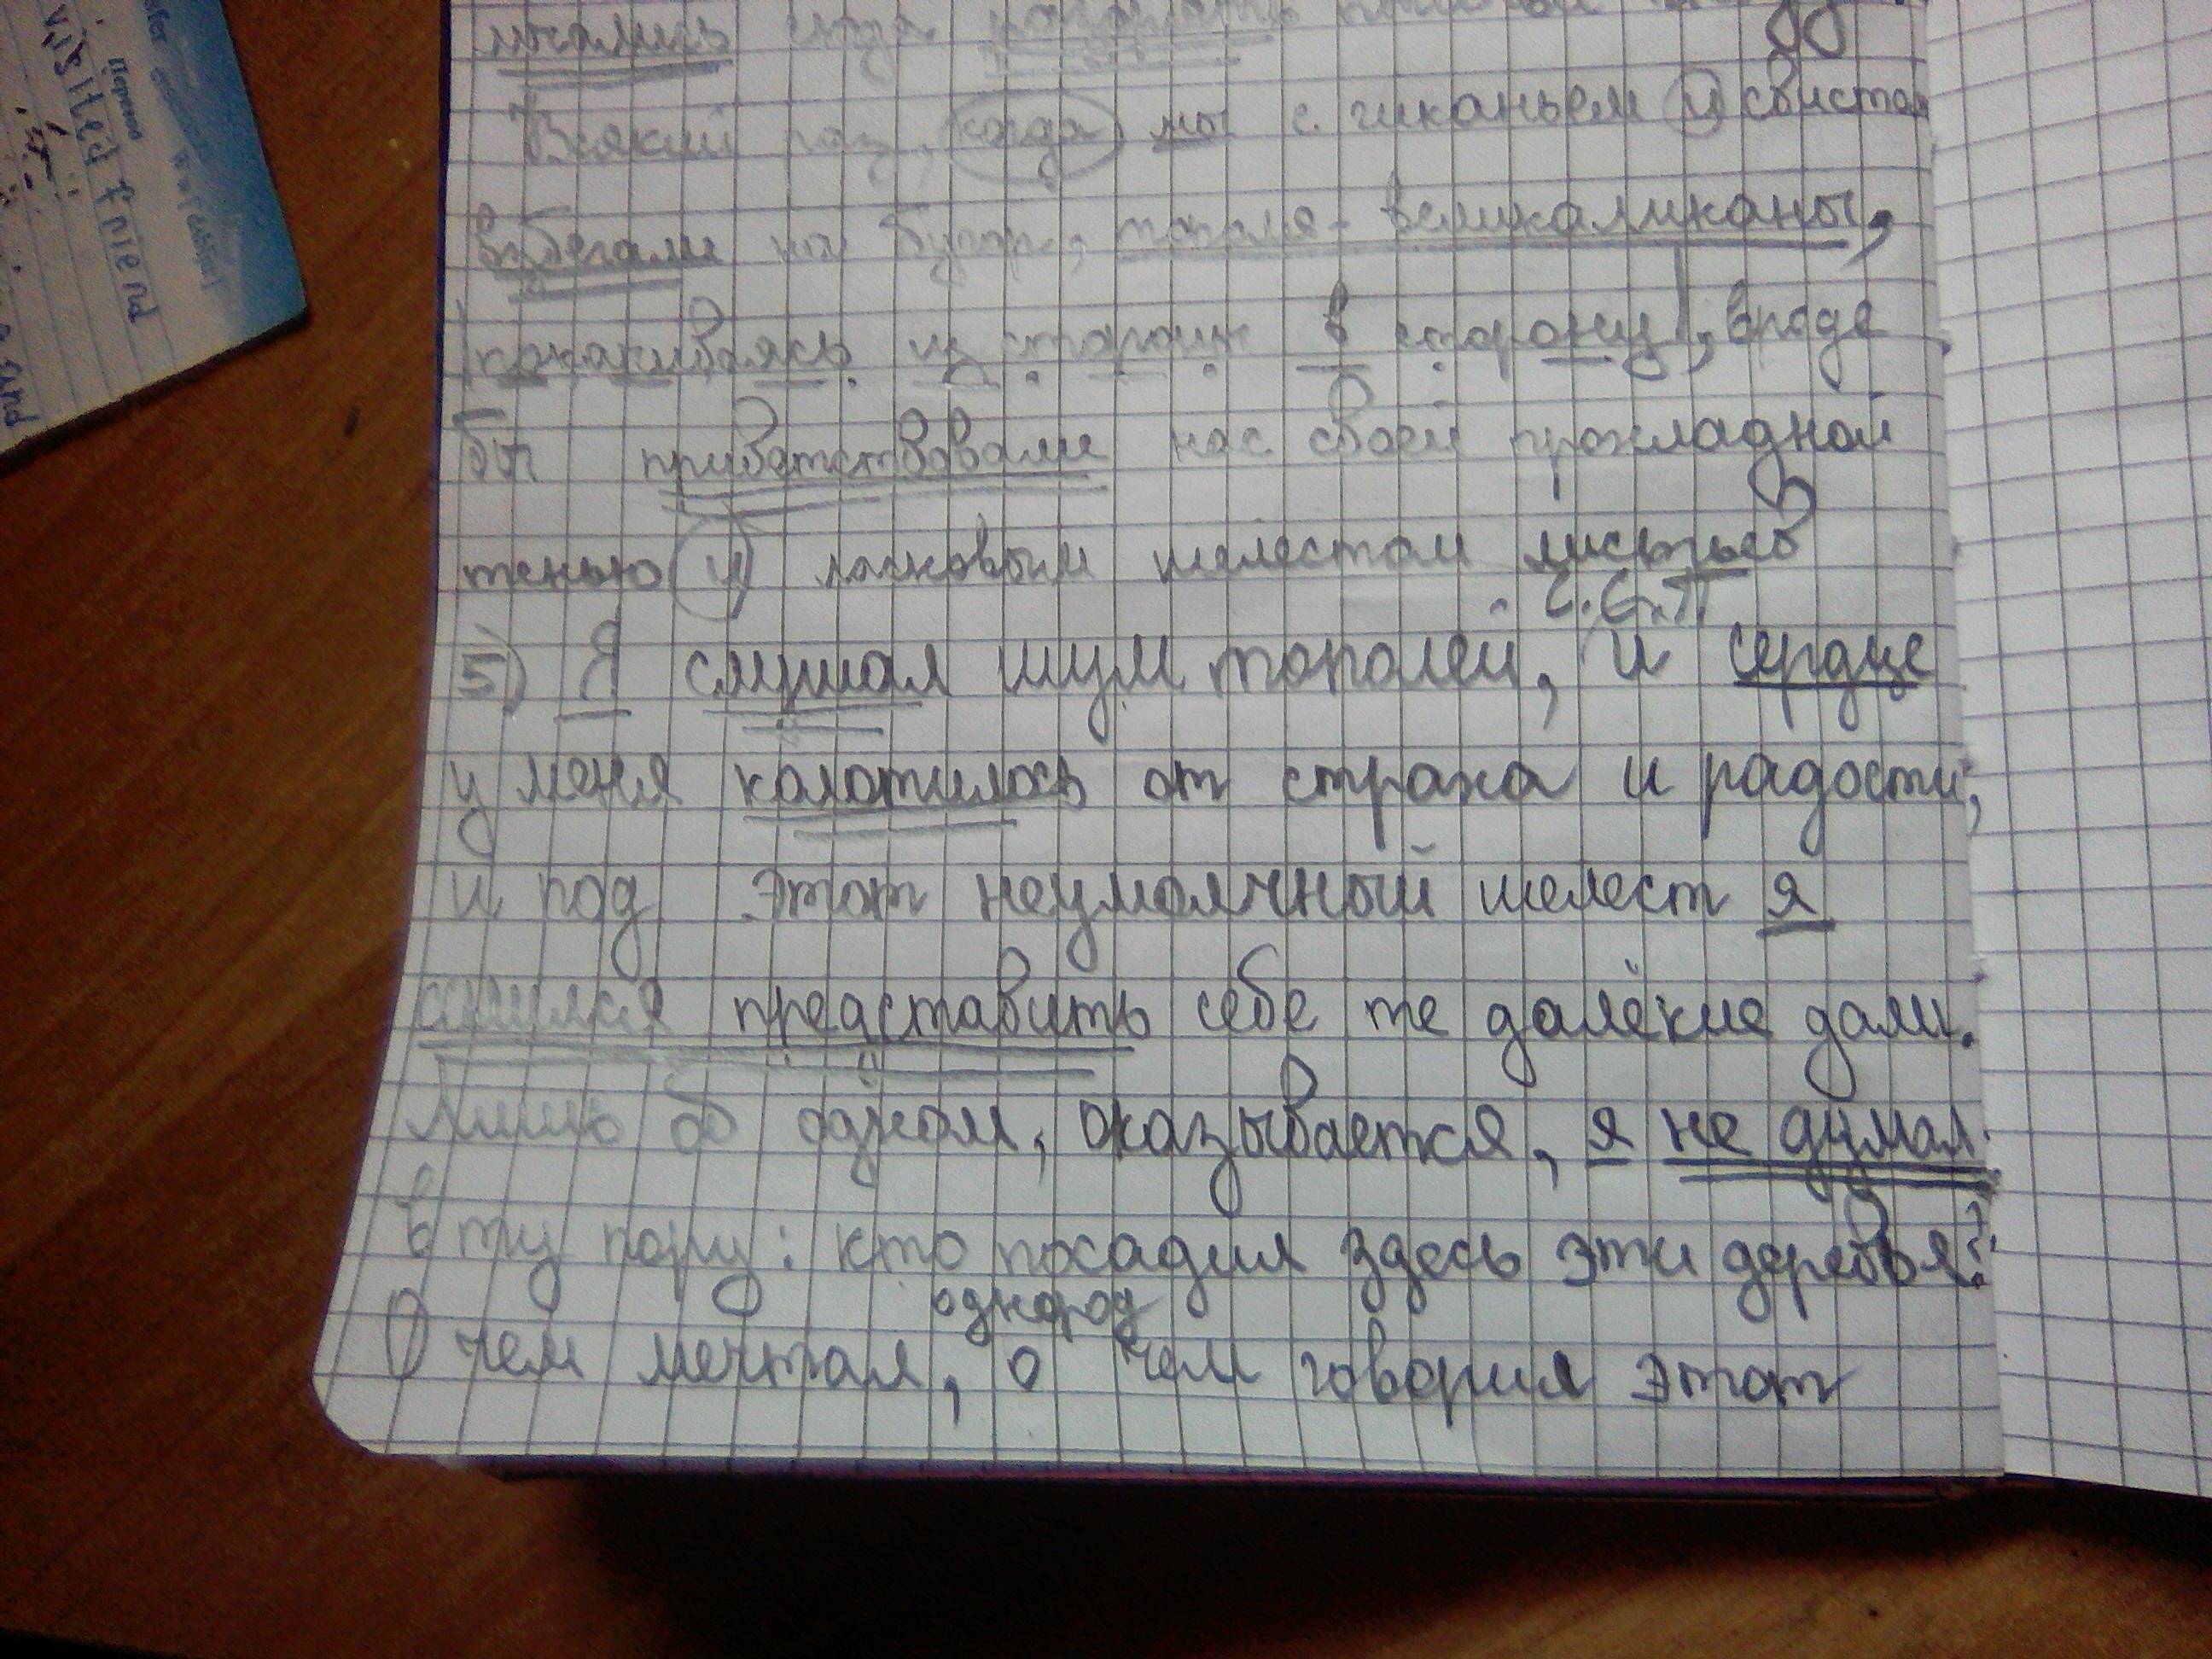 мчались сюда
Всякий раз, когда мы с гиканьем и свистом
взбегали на бугор, тополя-великаликаны,
покачиваясь из стороны в сторону, вроде
бы приветствовали нас своей прохладной
тенью и ласковым шелестом листьев
С.С.П.
5) Я слушал шум тополей, и сердце
у меня колотилось от страха и радости,
и под этот неумолчный шелест я
силился представить себе те далёкие дали.
Лишь об одном, оказывается, я не думал
в ту пору: кто посадил здесь эти деревья?
однород
О чём мечтал, о чём говорил этот
visited friend
Перевод
and